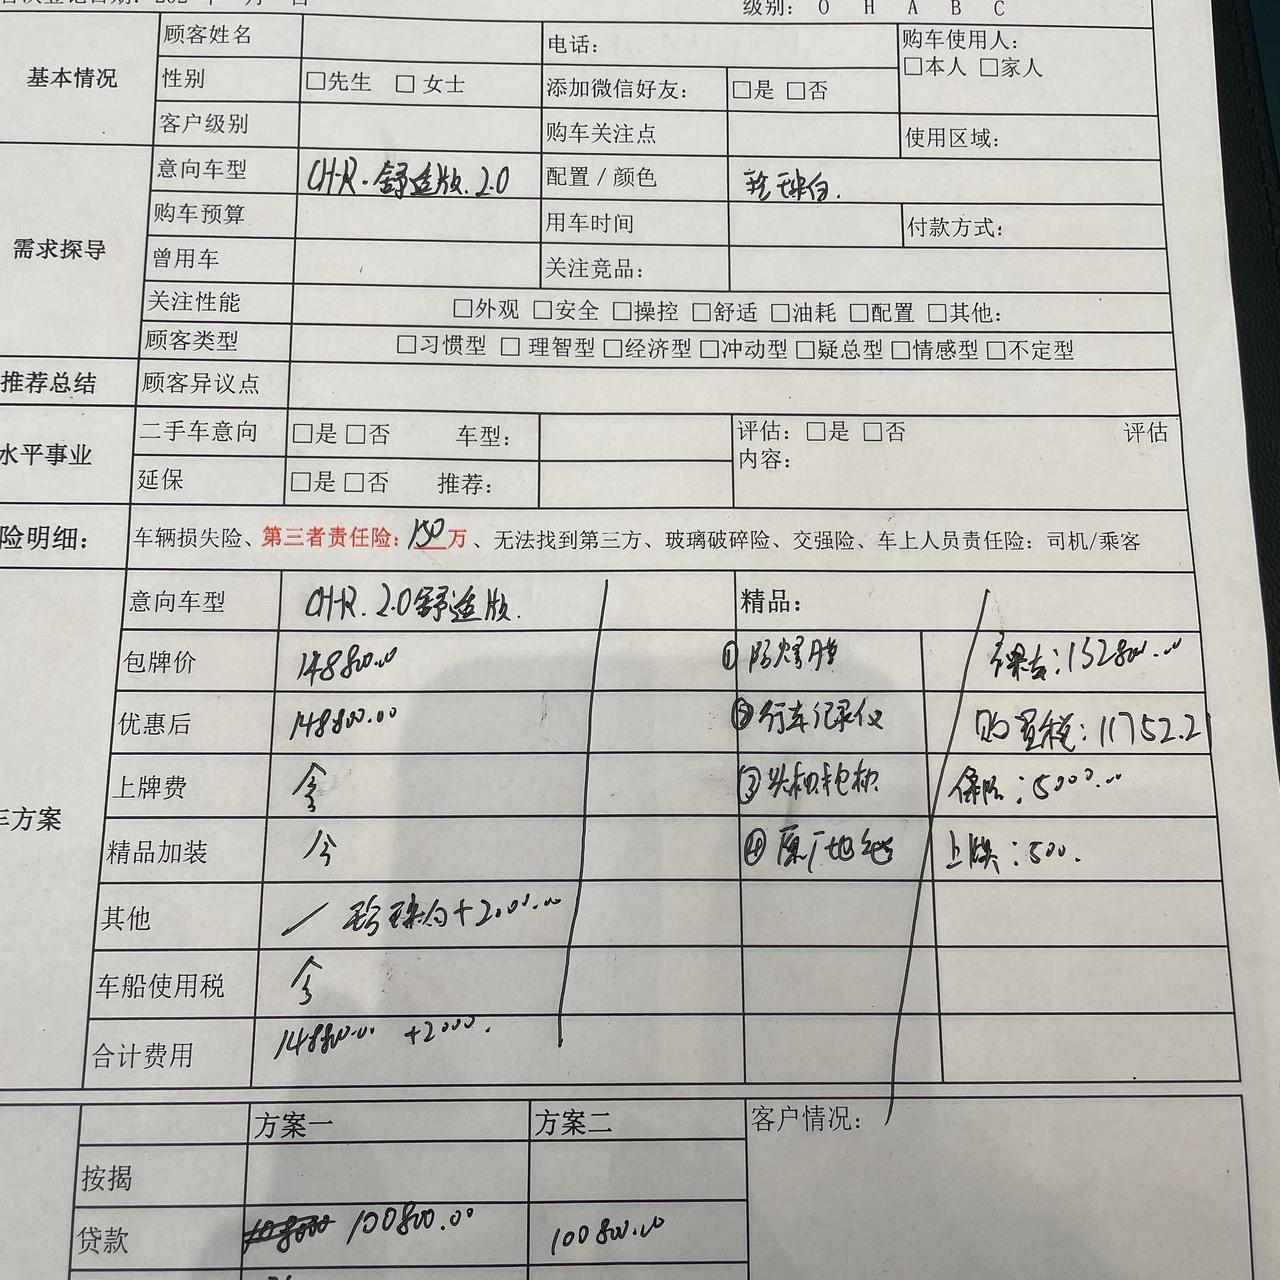 级别： O H A B C
基本情况 顾客姓名 电话： 购车使用人：
□本人 □家人
性别 □先生 □ 女士 添加微信好友： □是 □否
客户级别 购车关注点 使用区域：
需求探导 意向车型 CH-R.舒适版.2.0 配置/颜色 珍珠白.
购车预算 用车时间 付款方式：
曾用车 关注竞品：
关注性能 □外观 □安全 □操控 □舒适 □油耗 □配置 □其他：
顾客类型 □习惯型 □ 理智型 □经济型 □冲动型 □疑总型 □情感型 □不定型
推荐总结 顾客异议点
水平事业 二手车意向 □是 □否 车型： 评估：□是 □否 评估
内容：
延保 □是 □否 推荐：
险明细： 车辆损失险、第三者责任险：150万、无法找到第三方、玻璃破碎险、交强险、车上人员责任险：司机/乘客
意向车型 CH-R.2.0舒适版. 精品：
包牌价 148800.00 ①防爆膜 裸车：132800.00
优惠后 148800.00 ②行车记录仪 购置税：11752.21
上牌费 含 ③头枕抱枕 保险：5000.00
车方案
精品加装 含 ④原厂地毯 上牌：500.
其他 / 珍珠白+2000.00
车船使用税 含
合计费用 148800.00 +2000.
方案一 方案二 客户情况：
按揭
贷款 100800.00 100800.00